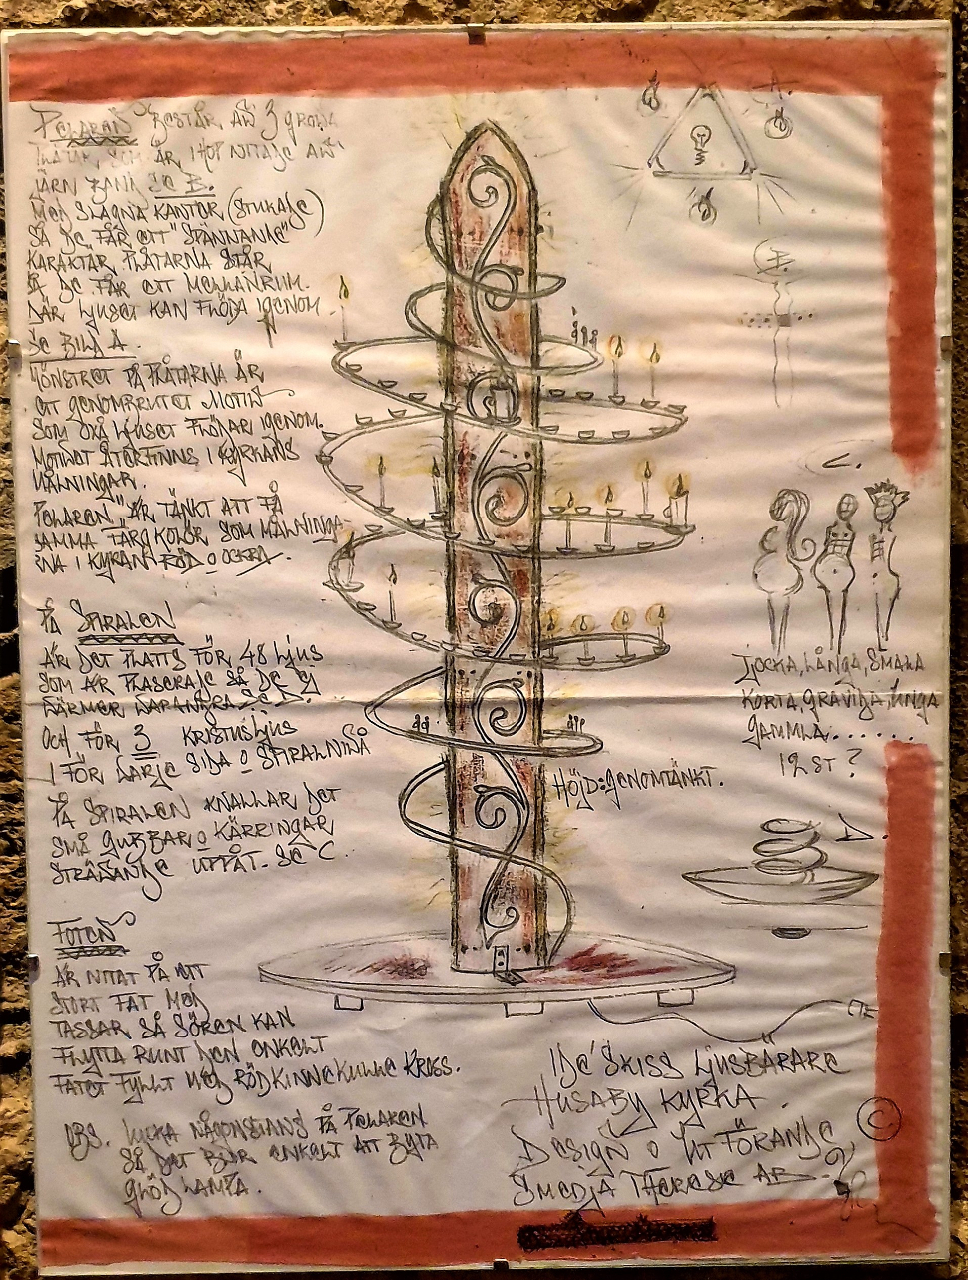 Pelaren består aw 3 growa
plåtar, som är ihop nitade aw
järn band se B.
med slagna kantor (stukade)
så de får ett "spännande"
karaktär. Plåtarna står
så de får ett mellanrum.
där ljuset kan flöda igenom
se bild A.
Mönstret på plåtarna är
ett genombrutet motiv
som oxå ljuset flödar igenom.
Motivet återfinns i kyrkans
målningar.
Pelaren är tänkt att få
samma färg kolör som målninga-
rna i kyrkan röd o ockra.
På Spiralen
är det plats för 48 ljus
som är plaserade så de ej
wärmer warandra se D.
och för 3 kristusljus
1 för warje sida o spiralnivå
På spiralen knallar det
små gubbar o kärringar
strävande uppåt. se C.
Foten
är nitat på ett
stort fat med
tassar så Sören kan
flytta runt den enkelt
fatet fyllt med röd Kinnekulle kross.
OBS. lucka någonstanns på pelaren
så det blir enkelt att byta
glödlampa.
A.
B.
C.
Tjocka, långa, smala
korta, gravida, unga
gammla......
12 st?
Höjd: genomtänkt.
D.
Idé skiss Ljusbärare
Husaby kyrka
©
Design o utförande
Smedja Therese AB